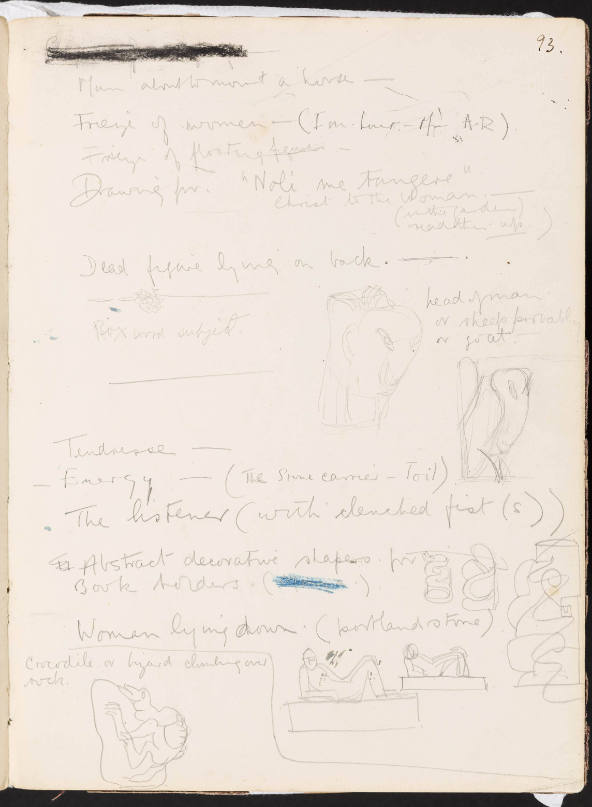 93.
Man about to mount a horse —
Frieze of women — (
A-R)
Frieze of floating
Drawing for. "Noli me tangere"
Christ to the woman. —
(in the garden)
Dead figure lying on back. —
head of man
or sheep probably
or goat.
Boxwood subject.
Tenderesse —
— Energy — (The Stone carrier — Toil)
The listener (with clenched fist (s))
Abstract decorative shapes for
Book holders. (          )
Woman lying down. (portland stone)
Crocodile or lizard climbing over
rock.